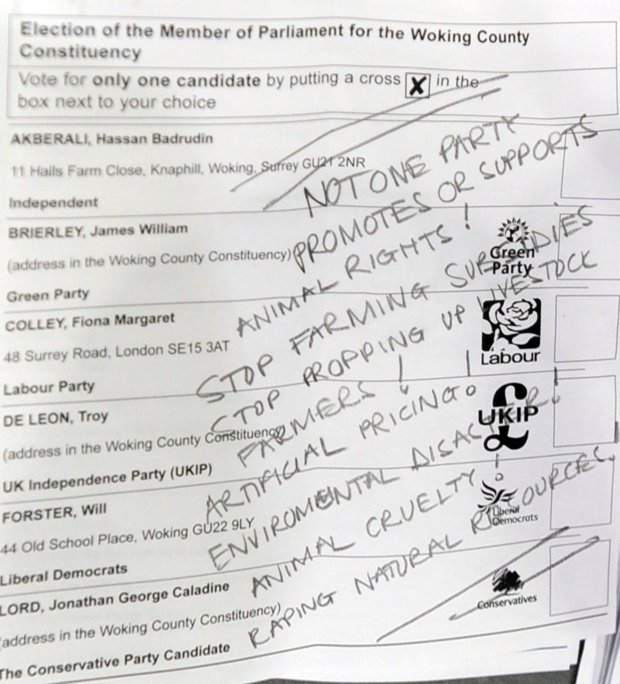 Election of the Member of Parliament for the Woking County
Constituency
Vote for only one candidate by putting a cross X in the
box next to your choice
AKBERALI, Hassan Badrudin
11 Halls Farm Close, Knaphill, Woking, Surrey GU21 2NR
Independent
BRIERLEY, James William
(address in the Woking County Constituency)
Green Party
Green
Party
COLLEY, Fiona Margaret
48 Surrey Road, London SE15 3AT
Labour Party
Labour
DE LEON, Troy
(address in the Woking County Constituency)
UK Independence Party (UKIP)
UKIP
FORSTER, Will
44 Old School Place, Woking GU22 9LY
Liberal Democrats
Liberal
Democrats
LORD, Jonathan George Caladine
(address in the Woking County Constituency)
The Conservative Party Candidate
Conservatives
NOT ONE PARTY
PROMOTES OR SUPPORTS
ANIMAL RIGHTS!
STOP FARMING SUBSIDIES
STOP PROPPING UP LIVESTOCK
FARMERS!
ARTIFICIAL PRICING!
ENVIROMENTAL DISASTER!
ANIMAL CRUELTY!
RAPING NATURAL RESOURCES.